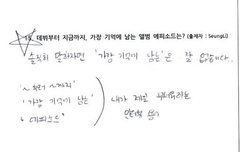 18. 데뷔부터 지금까지, 가장 기억에 남는 앨범 에피소드는? (출제자 : SeungLi)
솔직히 말하자면 '가장 기억에 남는'은 잘 없습니다.
'~ 부터 ~까지'
'가장 기억에 남는'
+ 에피소드
내가 제일